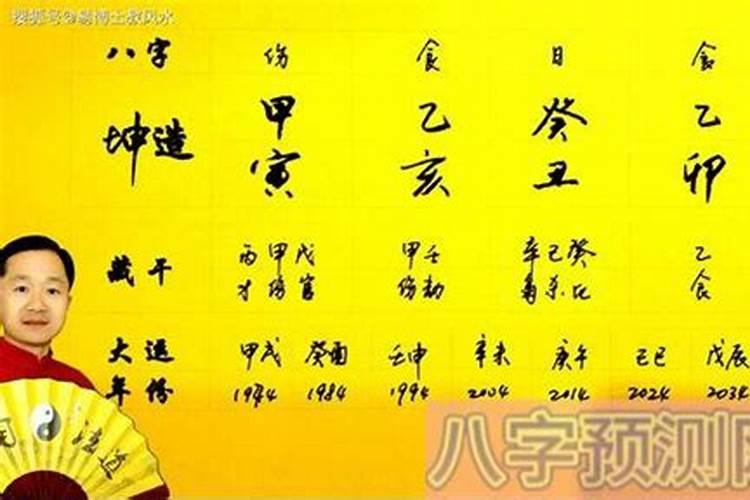 搜狐号@易博士教风水
八字 伤 食 日 食
坤造 甲 乙 癸 乙
寅 亥 丑 卯
藏干 丙甲戊 甲壬 辛己癸 乙
才伤官 伤劫 枭杀比 食
大运 甲戌 癸酉 壬申 辛未 庚午 己巳 戊辰
年份 1974 1984 1994 2004 2014 2024 2034
道
八字预测